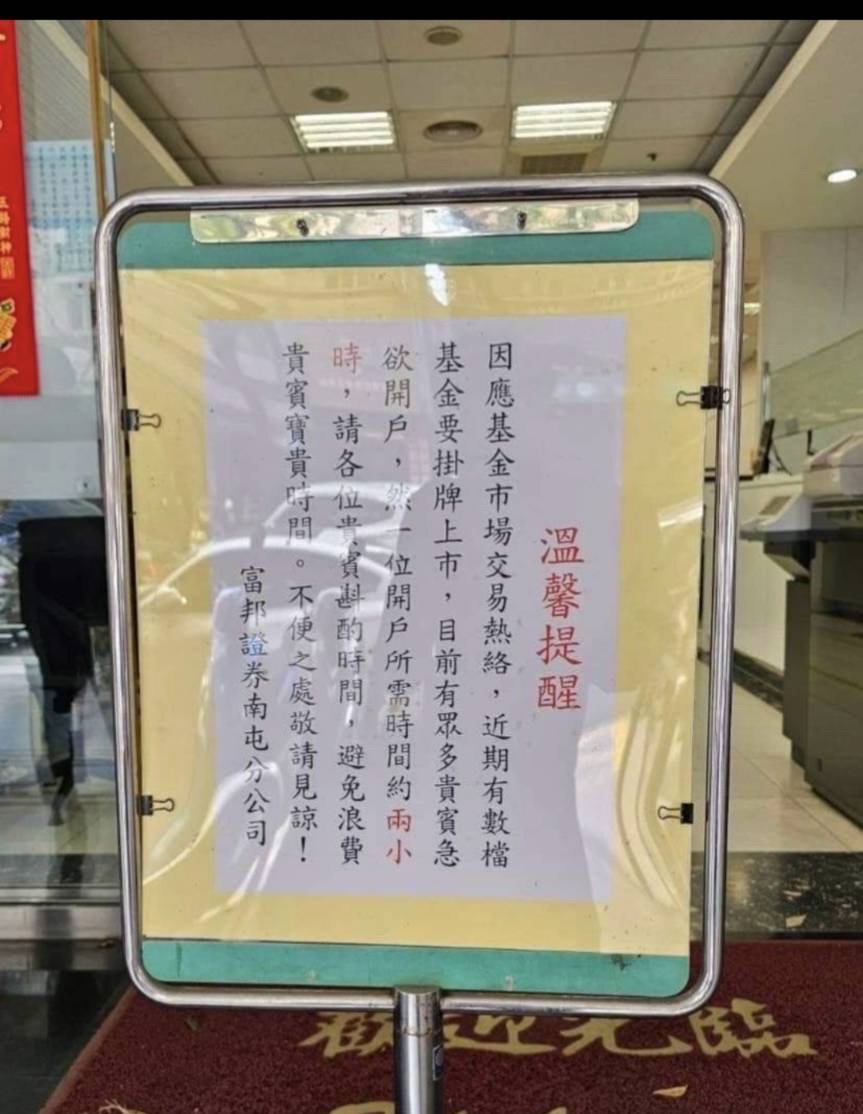 溫馨提醒
因應基金市場交易熱絡，近期有數檔
基金要掛牌上市，目前有眾多貴賓急
欲開戶，然一位開戶所需時間約兩小
時，請各位貴賓斟酌時間，避免浪費
貴賓寶貴時間。不便之處敬請見諒！
富邦證券南屯分公司
五路財神
歡迎光臨